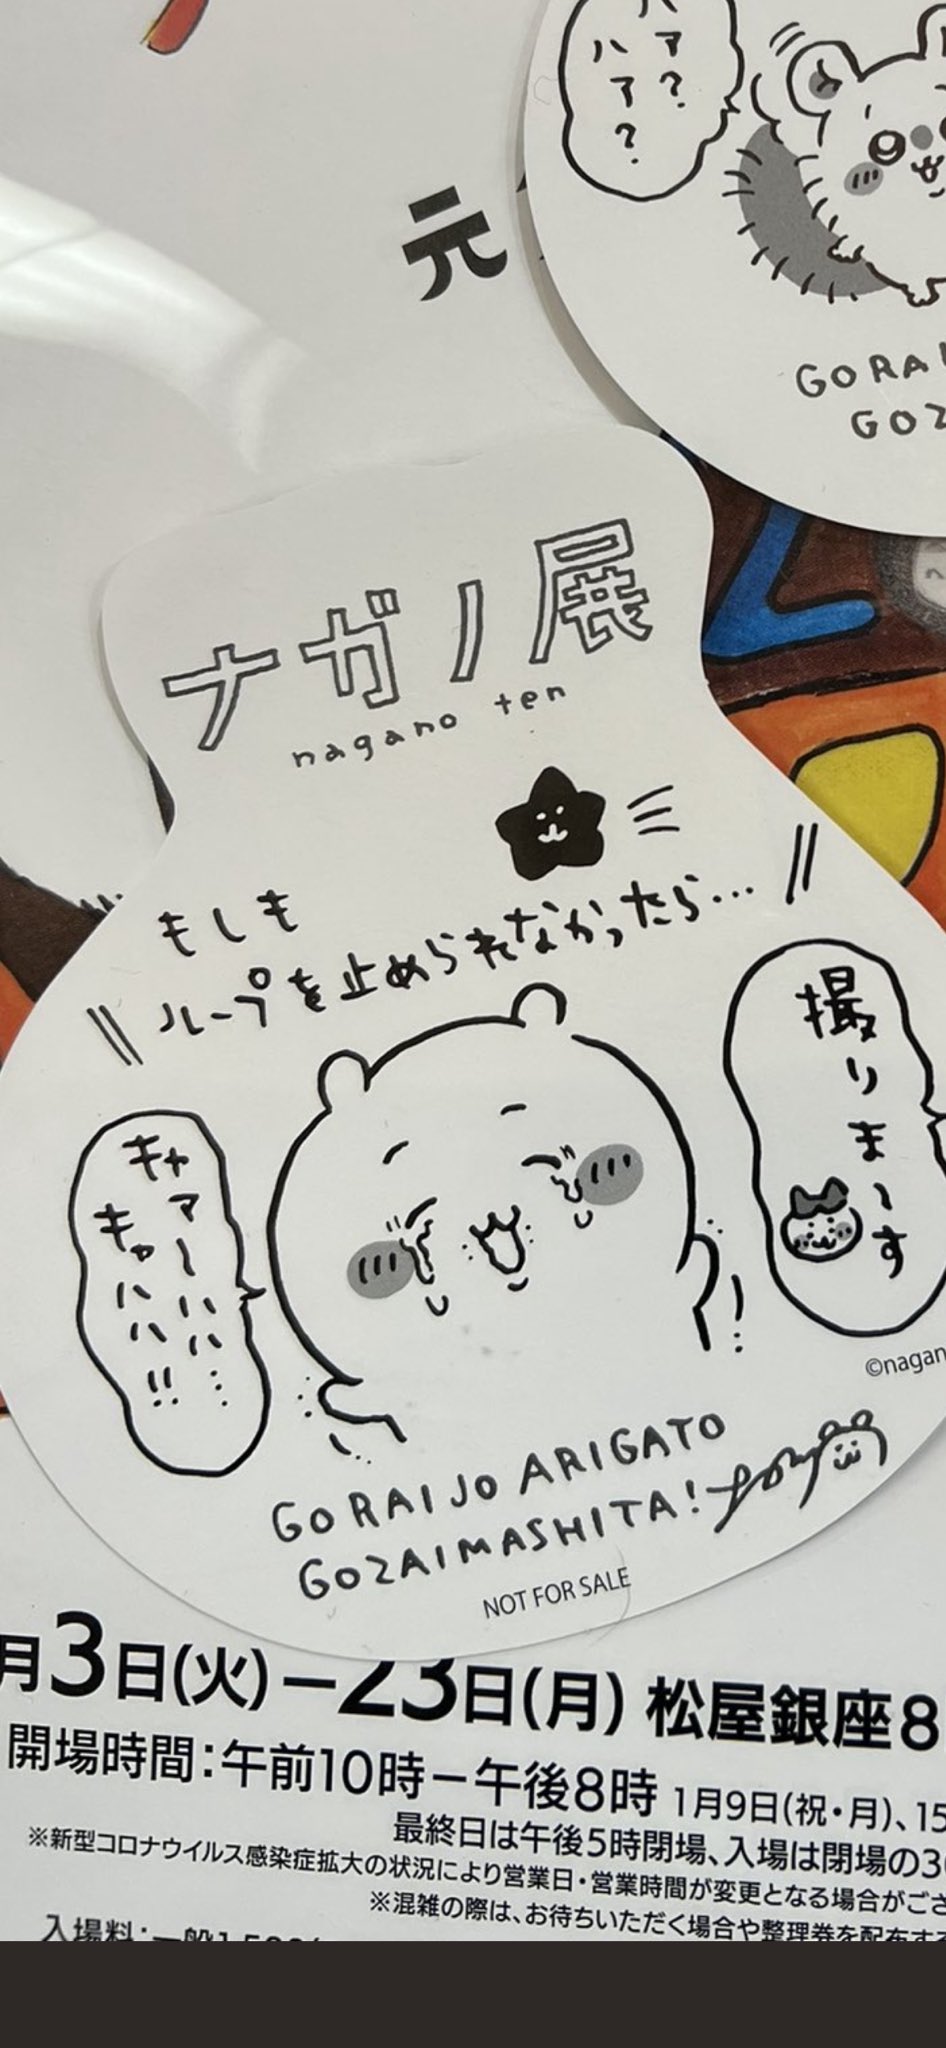 ハア?
ハア?
元
GORAI
GOZ
ナガノ展
nagano ten
もしも
ループを止められなかったら…
撮りま〜す
キャアーハハ…
キャハハ!!
©nagan
GORAIJO ARIGATO
GOZAIMASHITA!
NOT FOR SALE
月3日(火)−23日(月) 松屋銀座8
開場時間:午前10時−午後8時 1月9日(祝・月)、15
最終日は午後5時閉場、入場は閉場の30
※新型コロナウイルス感染症拡大の状況により営業日・営業時間が変更となる場合がござ
※混雑の際は、お待ちいただく場合や整理券を配布する
入場料:一般